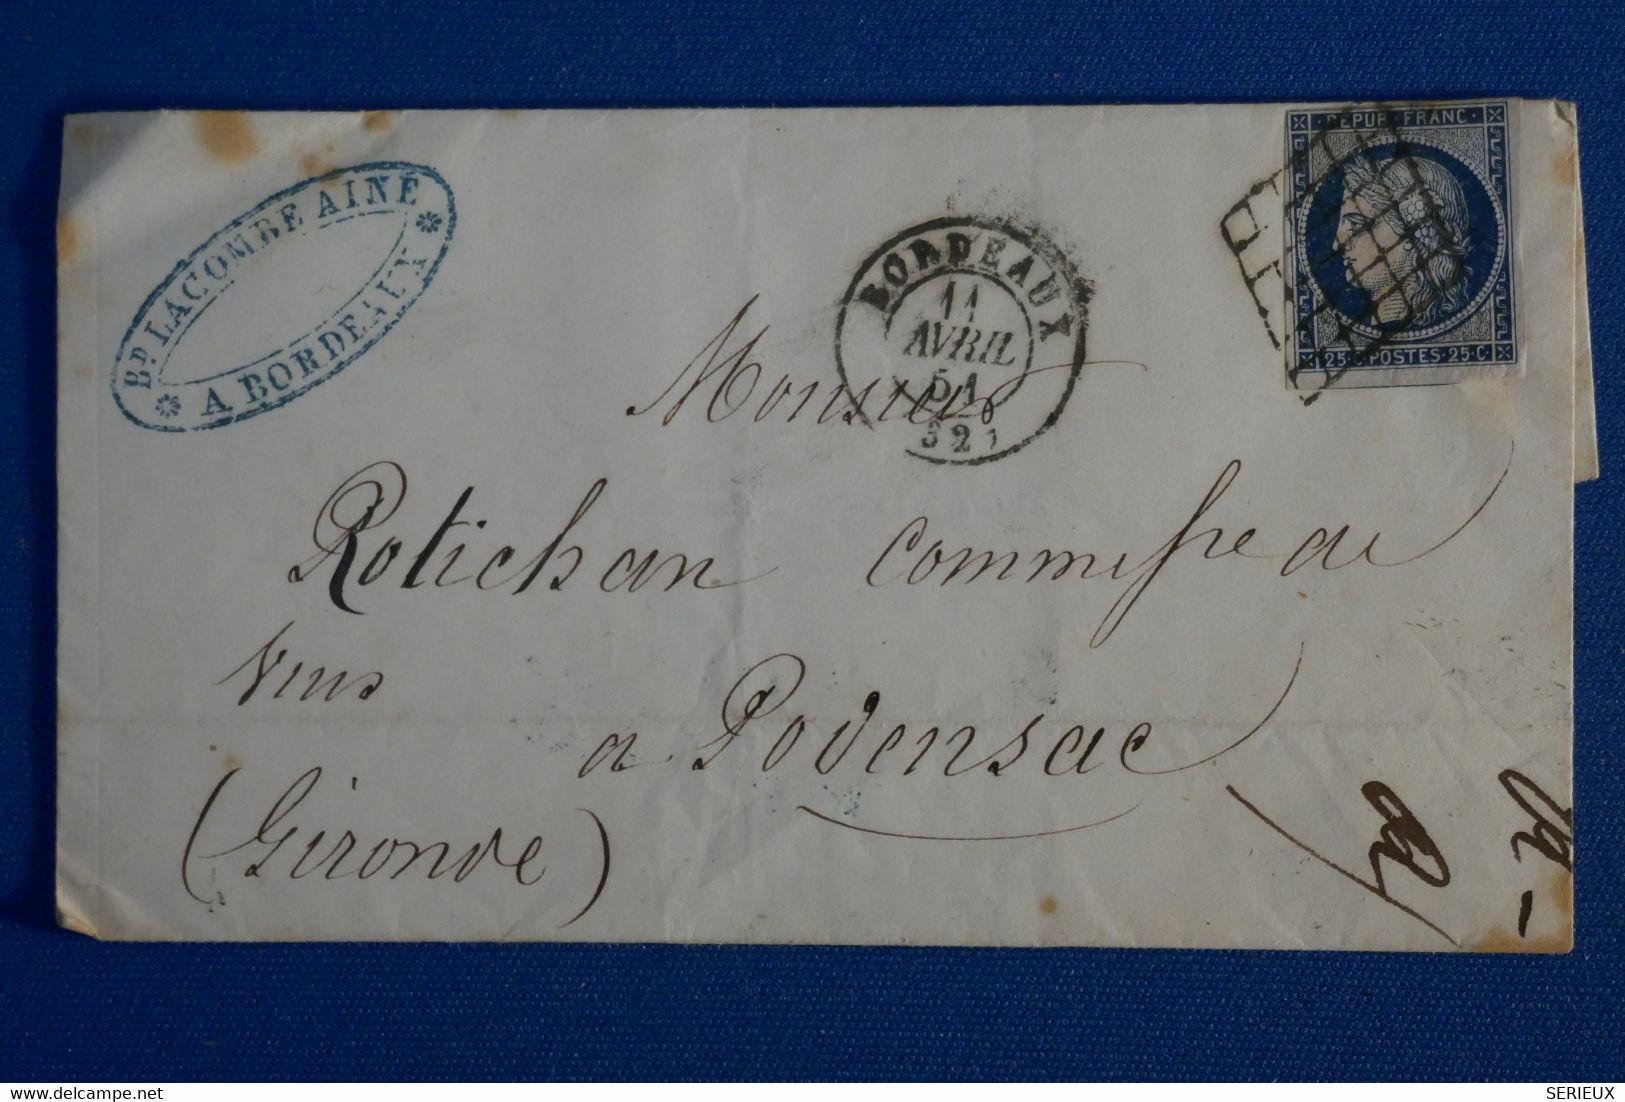 Bᴰ. LACOMBE AINÉ
A BORDEAUX
BORDEAUX
11
AVRIL
51
32
REPUB. FRANC.
25 C. POSTES. 25 C.
Monsieur
Rotichan Commissre de
vins
a Podensac
(Gironde)
www.delcampe.net
SERIEUX